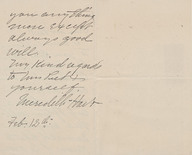 you anything
more except
always good
will.
My kind regards
to Mrs
yourself.
Meredith
Feb. 12th